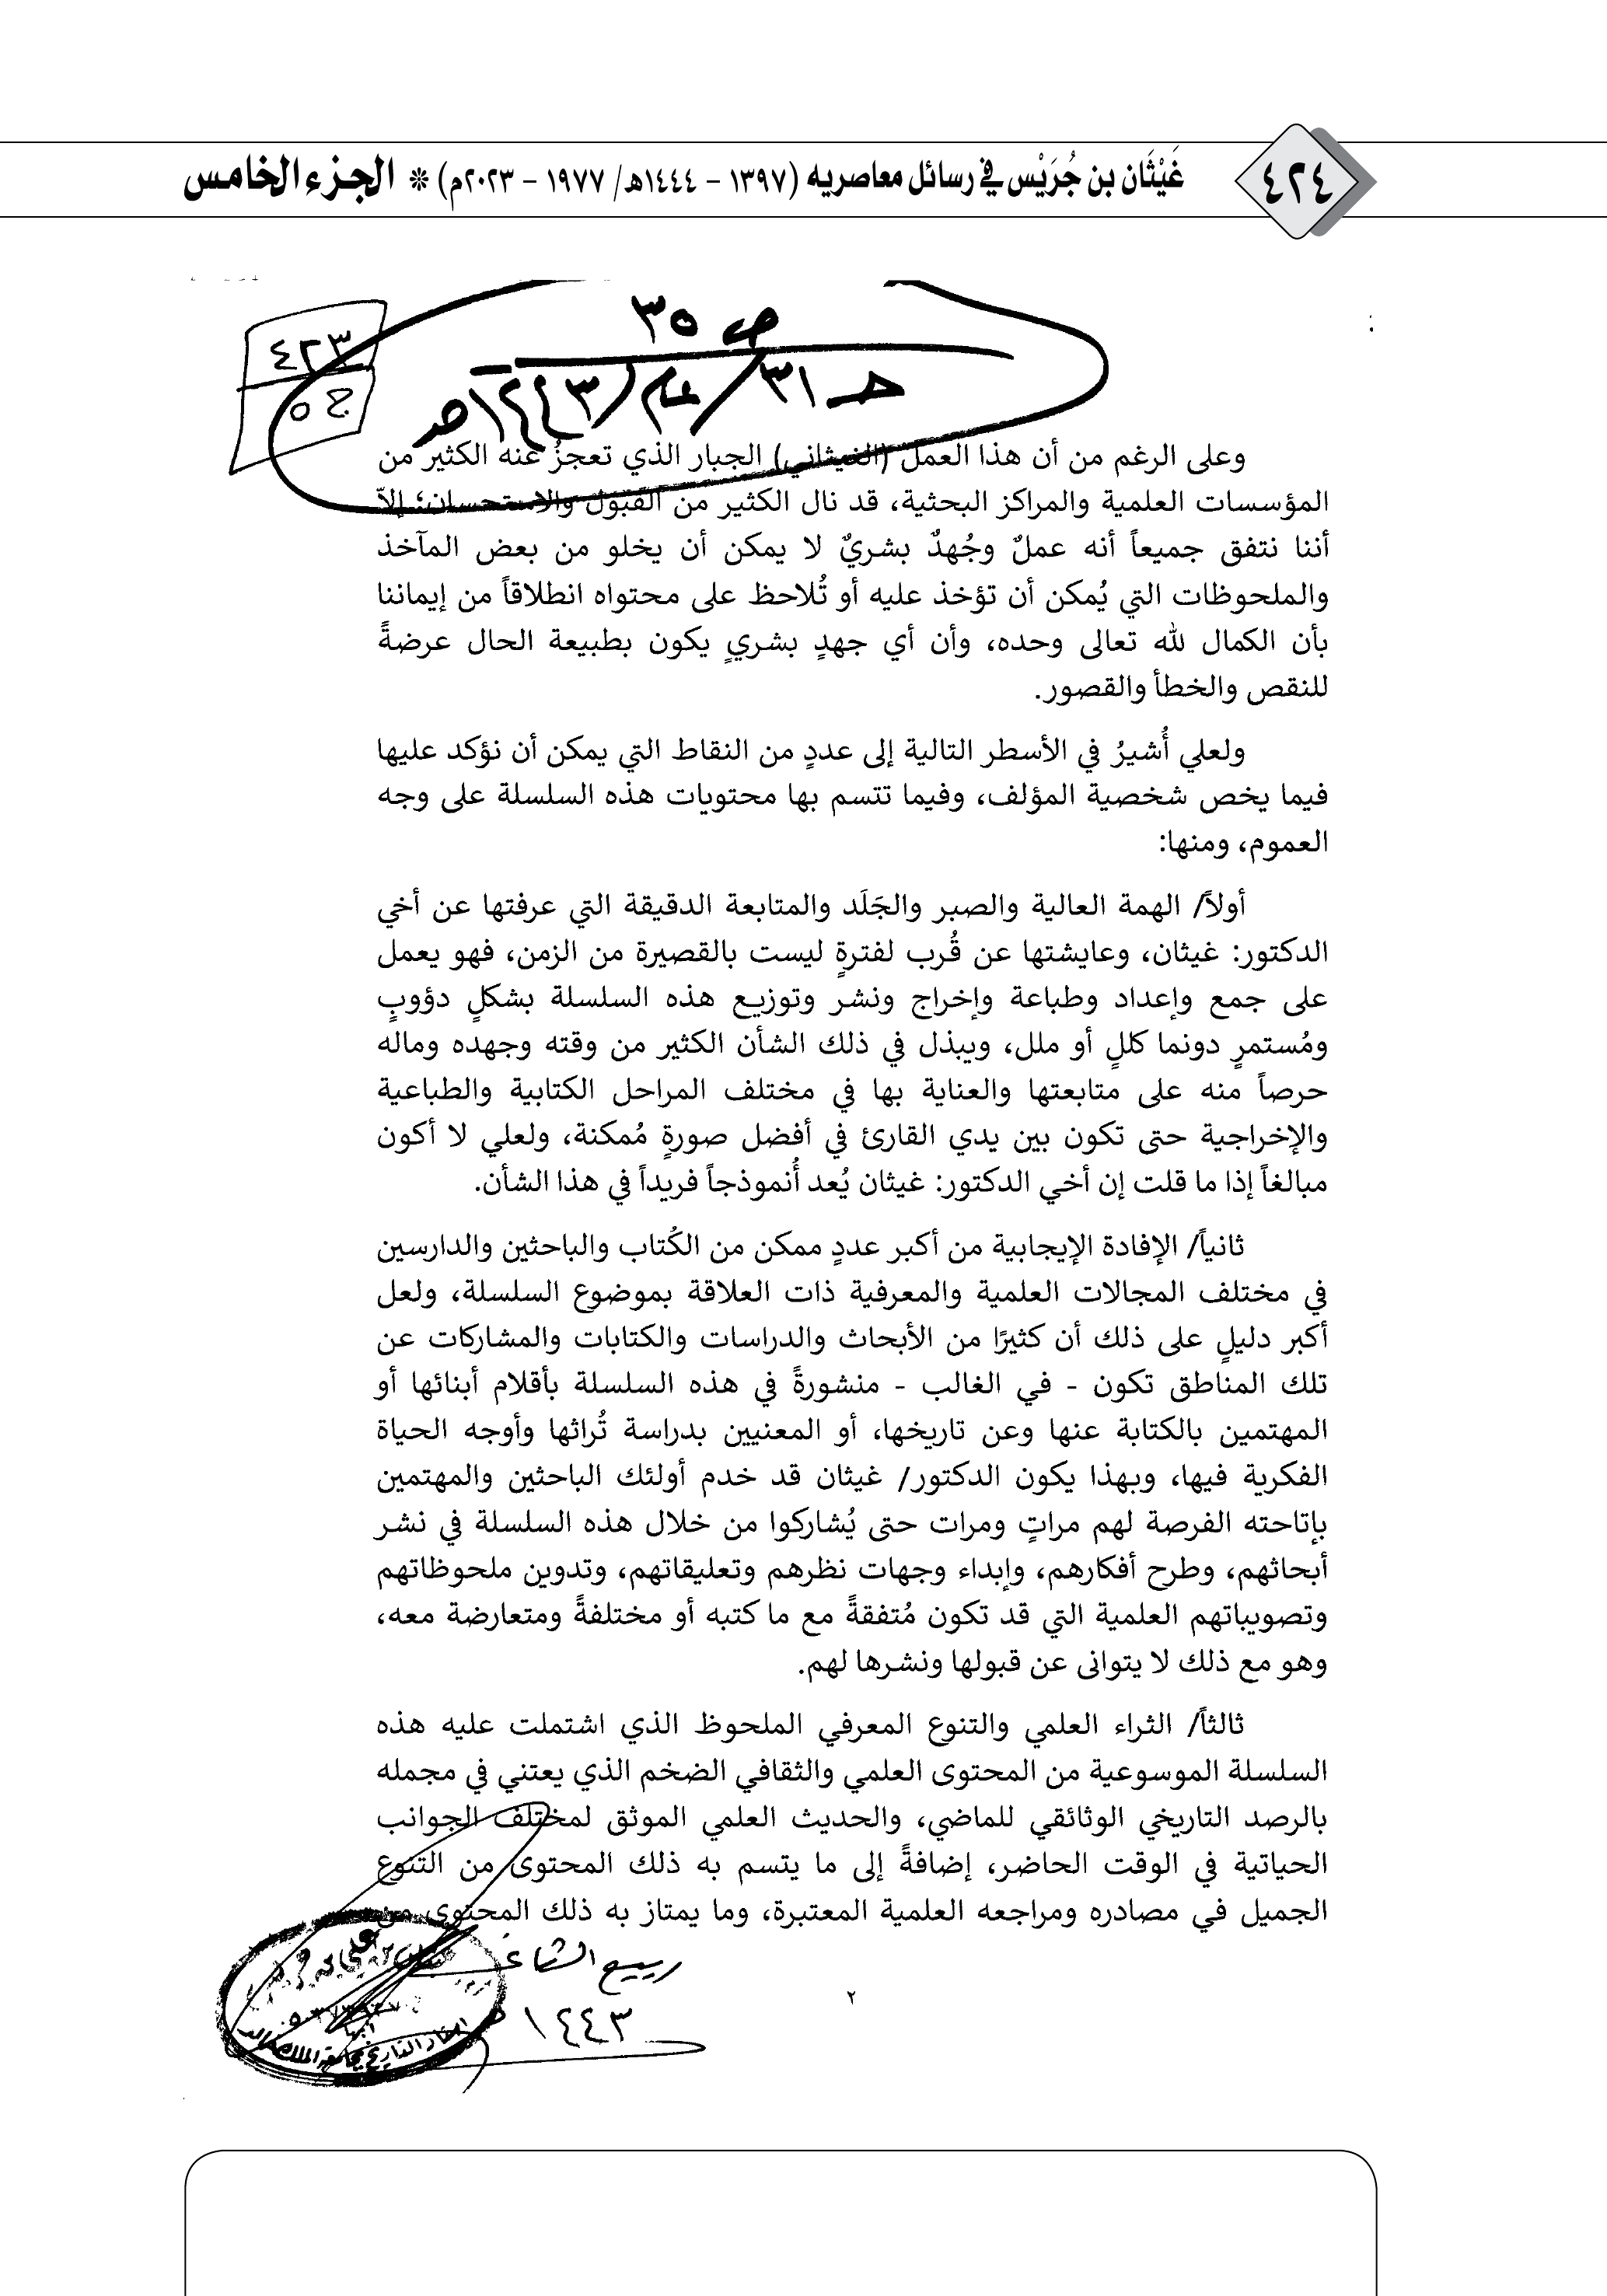 ٤٢٤
غَيْثَان بن جُرَيْس في رسائل معاصريه (١٣٩٧ - ١٤٤٤هـ/ ١٩٧٧ - ٢٠٢٣م) * الجزء الخامس
ص ٣٥
٤٢٣
ج ٥
وعلى الرغم من أن هذا العمل (الغيثاني) الجبار الذي تعجزُ عنه الكثير من
المؤسسات العلمية والمراكز البحثية، قد نال الكثير من القبول والاستحسان؛ إلاّ
أننا نتفق جميعاً أنه عملٌ وجُهدٌ بشريٌ لا يمكن أن يخلو من بعض المآخذ
والملحوظات التي يُمكن أن تؤخذ عليه أو تُلاحظ على محتواه انطلاقاً من إيماننا
بأن الكمال لله تعالى وحده، وأن أي جهدٍ بشريٍ يكون بطبيعة الحال عرضةً
للنقص والخطأ والقصور.
ولعلي أُشيرُ في الأسطر التالية إلى عددٍ من النقاط التي يمكن أن نؤكد عليها
فيما يخص شخصية المؤلف، وفيما تتسم بها محتويات هذه السلسلة على وجه
العموم، ومنها:
أولاً/ الهمة العالية والصبر والجَلَد والمتابعة الدقيقة التي عرفتها عن أخي
الدكتور: غيثان، وعايشتها عن قُرب لفترةٍ ليست بالقصيرة من الزمن، فهو يعمل
على جمع وإعداد وطباعة وإخراج ونشر وتوزيع هذه السلسلة بشكلٍ دؤوبٍ
ومُستمرٍ دونما كللٍ أو ملل، ويبذل في ذلك الشأن الكثير من وقته وجهده وماله
حرصاً منه على متابعتها والعناية بها في مختلف المراحل الكتابية والطباعية
والإخراجية حتى تكون بين يدي القارئ في أفضل صورةٍ مُمكنة، ولعلي لا أكون
مبالغاً إذا ما قلت إن أخي الدكتور: غيثان يُعد أُنموذجاً فريداً في هذا الشأن.
ثانياً/ الإفادة الإيجابية من أكبر عددٍ ممكن من الكُتاب والباحثين والدارسين
في مختلف المجالات العلمية والمعرفية ذات العلاقة بموضوع السلسلة، ولعل
أكبر دليلٍ على ذلك أن كثيرًا من الأبحاث والدراسات والكتابات والمشاركات عن
تلك المناطق تكون - في الغالب - منشورةً في هذه السلسلة بأقلام أبنائها أو
المهتمين بالكتابة عنها وعن تاريخها، أو المعنيين بدراسة تُراثها وأوجه الحياة
الفكرية فيها، وبهذا يكون الدكتور/ غيثان قد خدم أولئك الباحثين والمهتمين
بإتاحته الفرصة لهم مراتٍ ومرات حتى يُشاركوا من خلال هذه السلسلة في نشر
أبحاثهم، وطرح أفكارهم، وإبداء وجهات نظرهم وتعليقاتهم، وتدوين ملحوظاتهم
وتصويباتهم العلمية التي قد تكون مُتفقةً مع ما كتبه أو مختلفةً ومتعارضة معه،
وهو مع ذلك لا يتوانى عن قبولها ونشرها لهم.
ثالثاً/ الثراء العلمي والتنوع المعرفي الملحوظ الذي اشتملت عليه هذه
السلسلة الموسوعية من المحتوى العلمي والثقافي الضخم الذي يعتني في مجمله
بالرصد التاريخي الوثائقي للماضي، والحديث العلمي الموثق لمختلف الجوانب
الحياتية في الوقت الحاضر، إضافةً إلى ما يتسم به ذلك المحتوى من التنوع
الجميل في مصادره ومراجعه العلمية المعتبرة، وما يمتاز به ذلك المحتوى من
ربيع الثاني
١٤٤٣هـ
٢